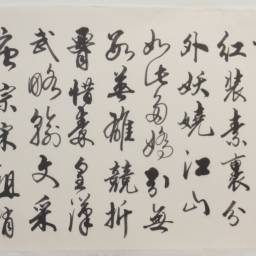 红装素裹分
外妖娆江山
如此多嬌引無
數英雄競折
腰惜秦皇漢
武略輸文采
唐宗宋祖稍